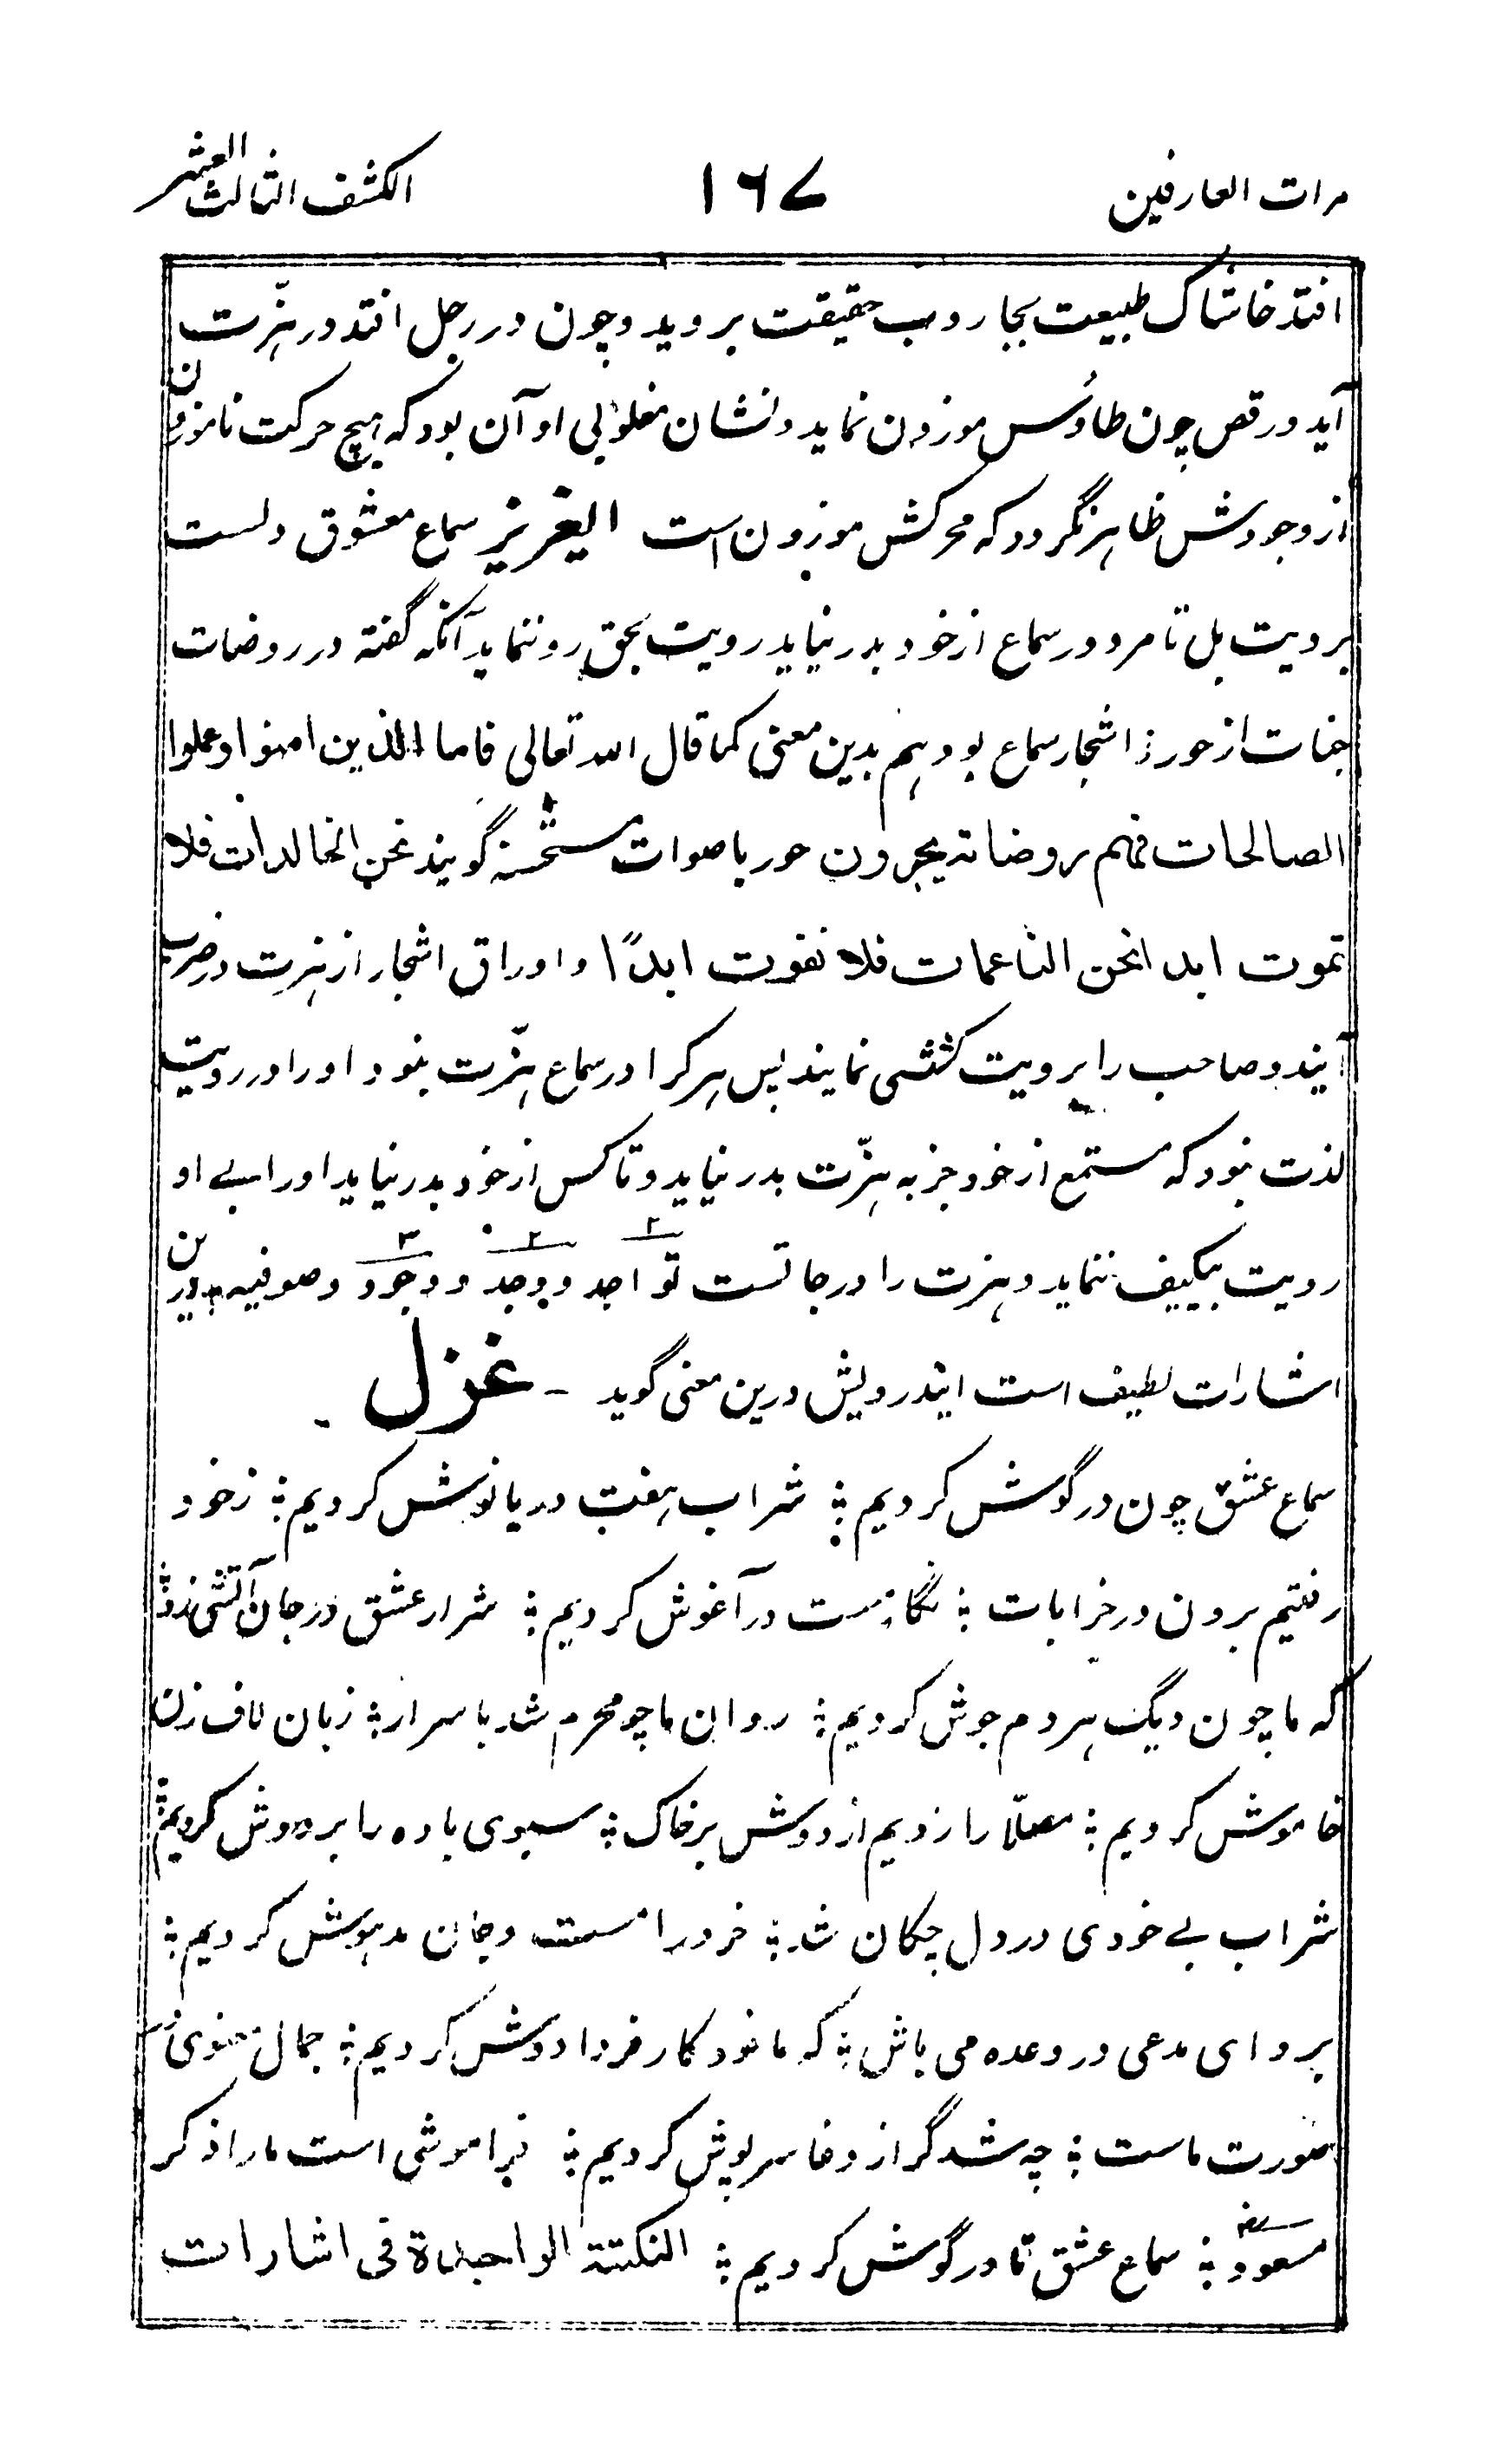 مرات العارفین ۱۶۷ الکشف الثالث العشر
افتد خاشاک طبیعت بجاروب حقیقت بروید و چون در رجل افتد در ہزّت
آید و رقص چون طاؤس موزون نماید و نشان مغلوبی او آن بود کہ ہیچ حرکت ناموزون
از وجودش ظاہر نگردد کہ محرکش موزون است ایعزیز سماع معشوق دلست
برویت بل تا مرد در سماع از خود بدر نیاید رویت بحق رو ننماید آنکہ گفتہ در روضات
جنات از حور ز اشجار سماع بود ہم بدین معنی کما قال اللہ تعالی فاما الذین امنوا وعملوا
الصالحات فہم بروضاتہ یجرون حور باصوات مستحسنہ گویند نحن الخالدات فلا
تموت ابدا نحن الناعمات فلا نفوت ابدًا و اوراق اشجار از ہزت در ضرب
آیند و صاحب را برویت کششی نمایند پس ہر کرا در سماع ہزّت بنود او را در رویت
لذت نبود کہ مستمع از خود جز بہ ہزّت بدر نیاید و تا کس از خود بدر نیاید او را بے او
رویت بیکیف ننماید و ہزت را درجاتست تواجد و وجد و وجود و صوفیہ بدین
۲ ۲ ۳
اشارات لطیف است ایندرویش درین معنی گوید - غزل -
سماع عشق چون در گوش کردیم ؛ شراب ہفت دریا نوش کردیم ؛ زخود
رفتیم برون در خرابات ؛ نگار مست در آغوش کردیم ؛ شرار عشق در جان آتشی زد ؛
کہ ما چون دیگ ہر دم جوش کردیم ؛ روان ما چو محرم شد باسرار ؛ زبان لاف زن
خاموش کردیم ؛ مصلّا را زدیم از دوش بر خاک ؛ سبوی بادہ را بر دوش کردیم ؛
شراب بے خودی در دل چکان شد ؛ خرد را مست و جان مدہوش کردیم ؛
برو ای مدعی در وعدہ می باش ؛ کہ ما خود کار فردا دوش کردیم ؛ جمال معنوی
صورت ماست ؛ چہ شد گر از وفا سرپوش کردیم ؛ فراموشی است ما را ذکر
مسعود ؛ سماع عشق تا در گوش کردیم ؛ النکتۃ الواحدۃ فی اشارات